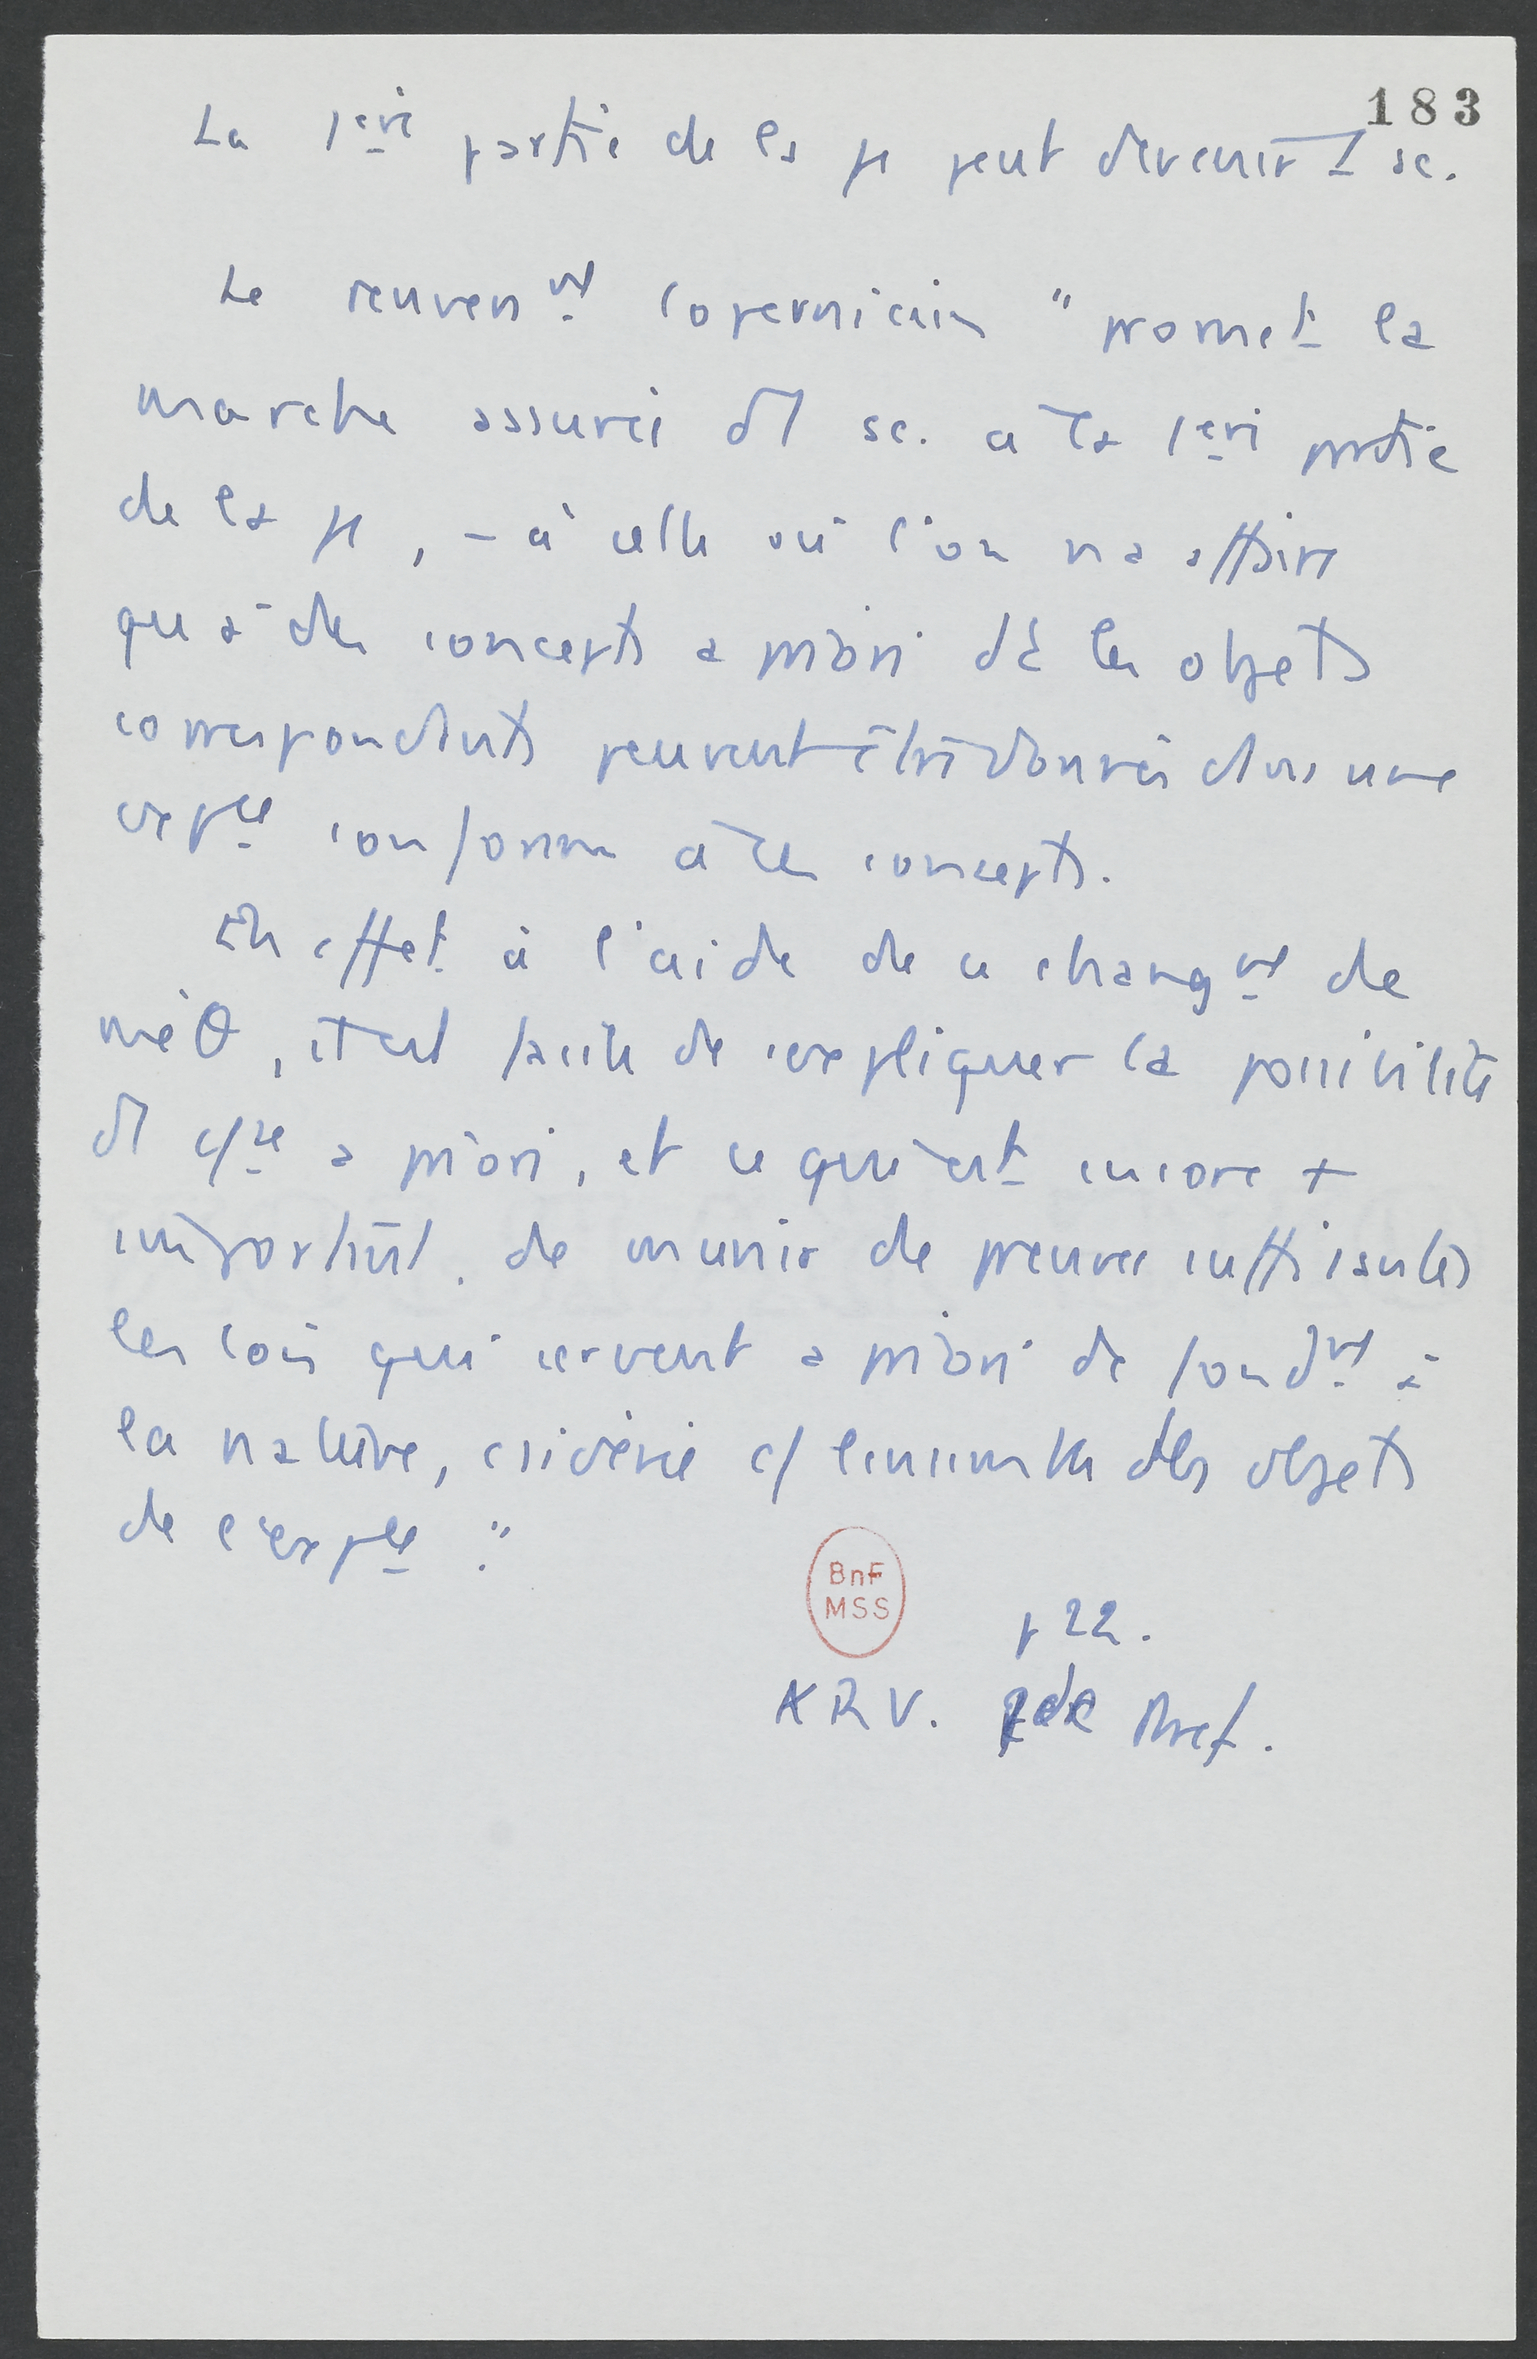 183
La 1ère partie de la φ peut devenir 1 sc.
Le renversmt copernicien "promet la
marche assurée d'1 sc. à la 1ère partie
de la φ, - à celle où l'on n'a affaire
qu'à des concepts a priori dt les objets
correspondants peuvent être donnés dans une
expce conforme à ces concepts.
En effet à l'aide de ce changmt de
méθ, il est facile de expliquer la possibilité
d'1 c/ce a priori, et ce qui est encore +
important, de munir de preuves suffisantes
les lois qui servent a priori de fondmt à
la nature, csidérée c/ l'ensemble des objets
de l'expce."
BnF
MSS
p 22.
KRV. 2de Pref.